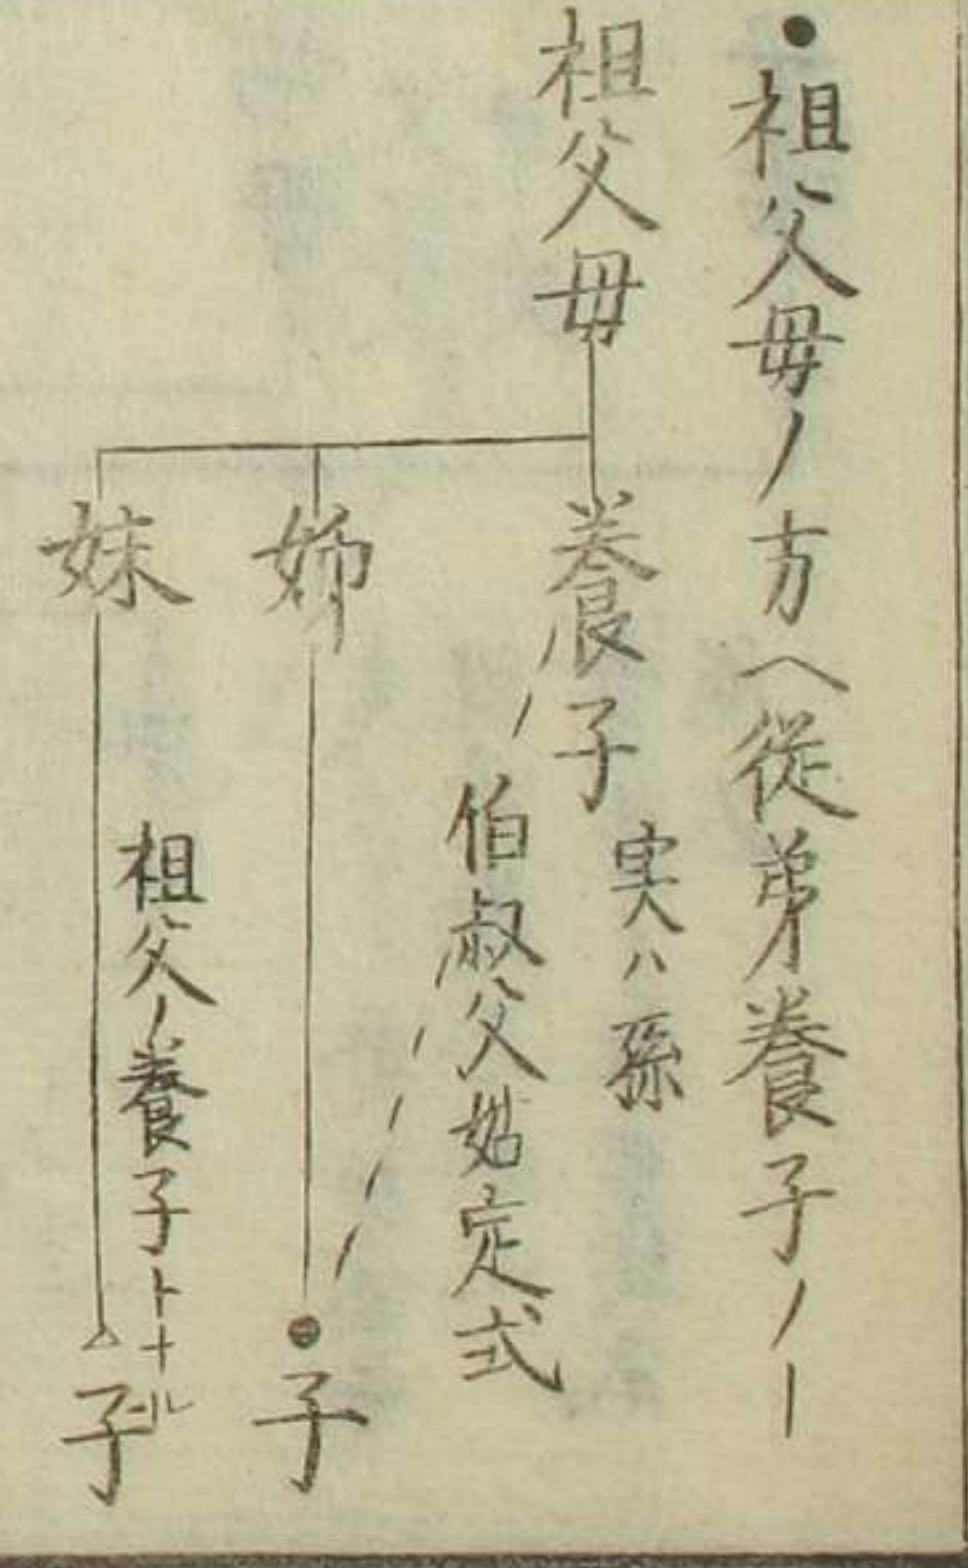 ●祖父母ノ方ヘ従弟養子ノー
祖父母
養子
実ハ孫
伯叔父姑定式
姉
子
妹
祖父ノ養子トナル
子